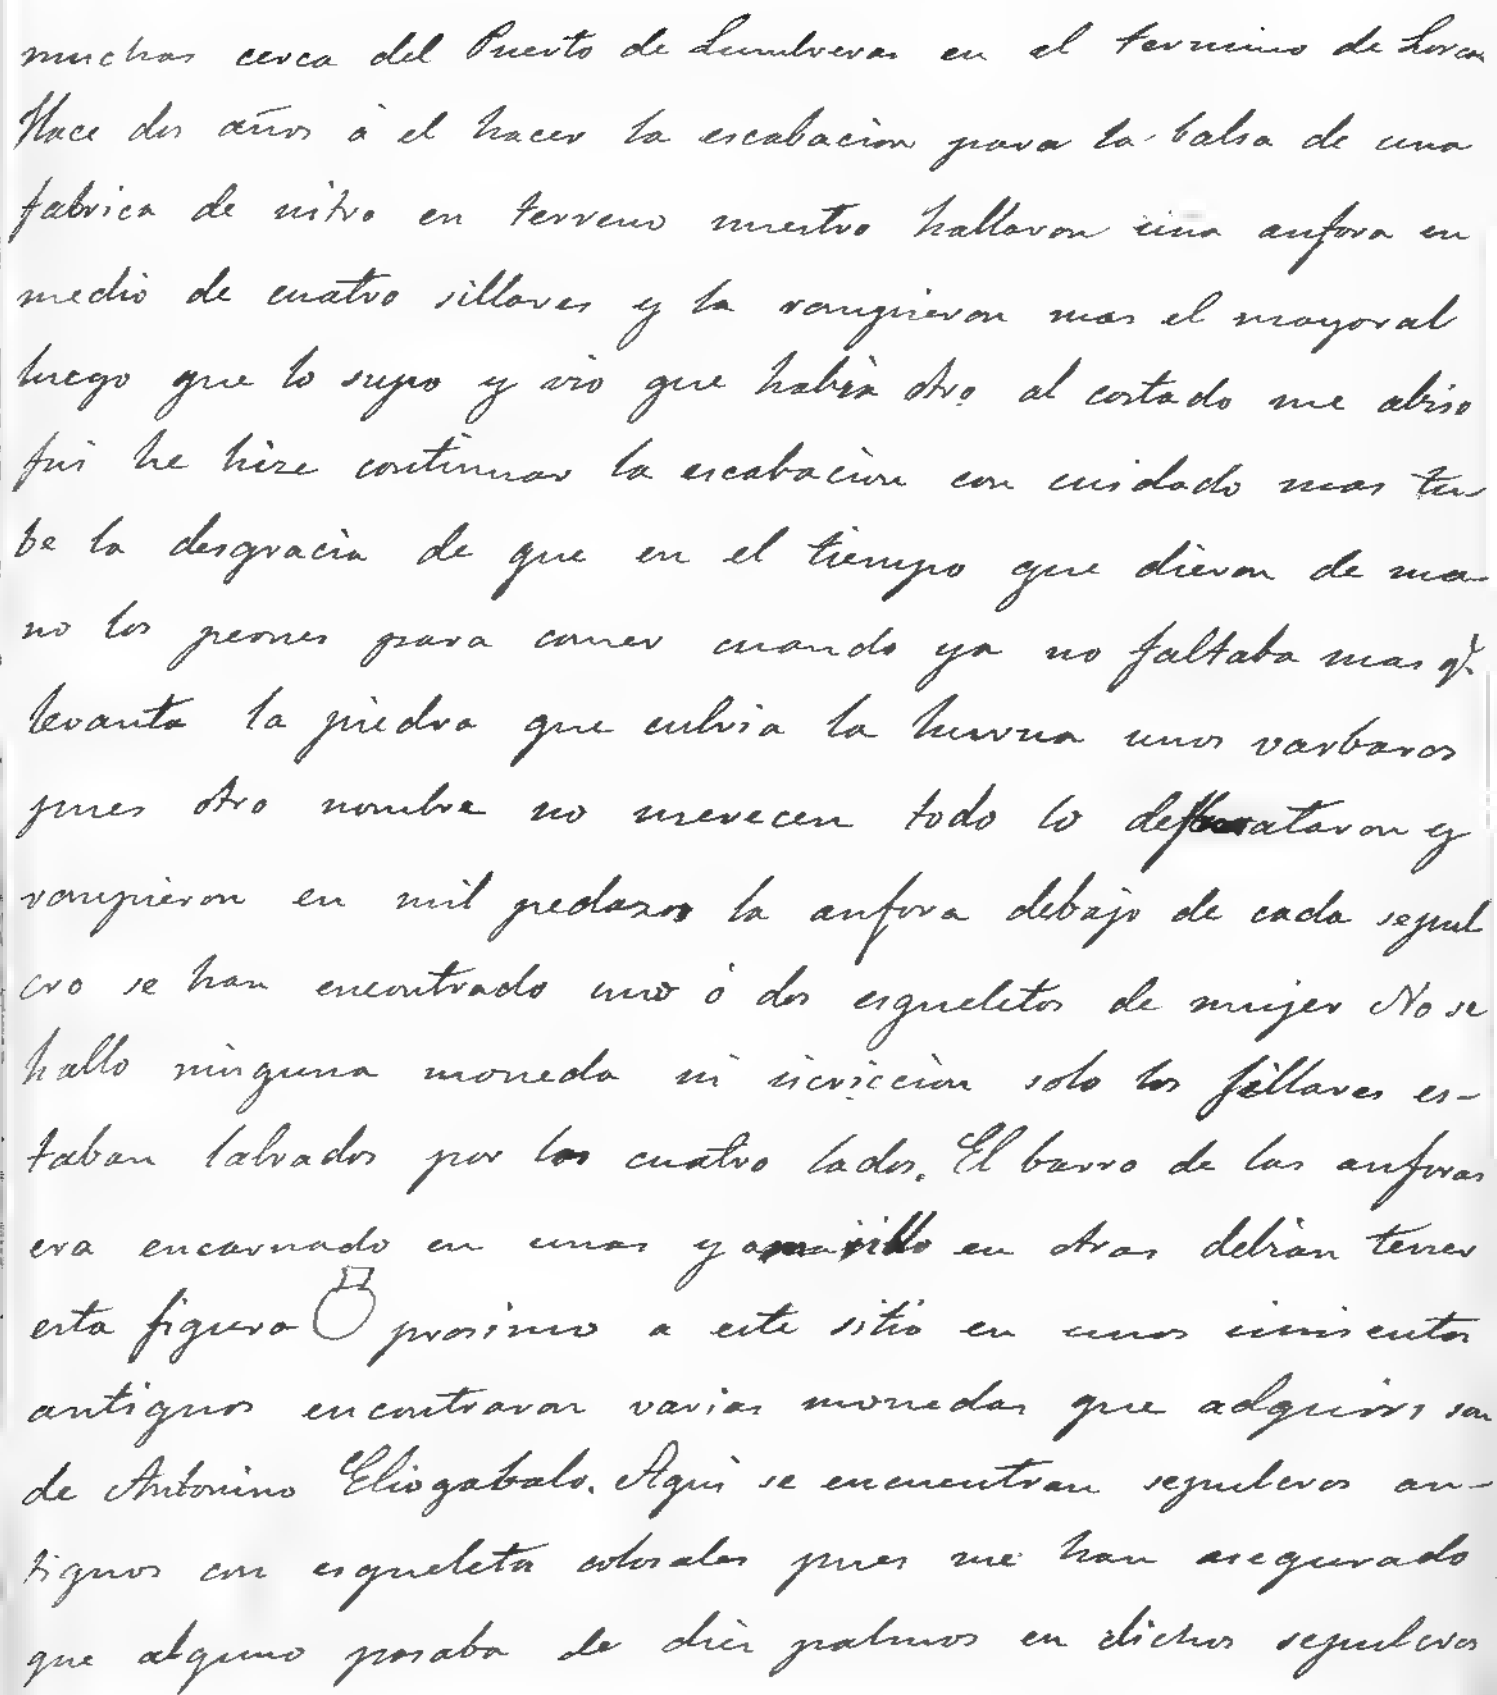 muchas cerca del Puerto de Lumbreras en el termino de Lorca
Hace dos años à el hacer la escabacion para la balsa de una
fabrica de nitro en terreno nuestro hallaron una anfora en
medio de cuatro sillares y la rompieron mas el mayoral
luego que lo supo y vio que habia otro al costado me abiso
fui he hize continuar la escabacion con cuidado mas tu
be la desgracia de que en el tiempo que dieron de ma-
no los peones para comer cuando ya no faltaba mas q.e
levanta la piedra que cubria la hurna unos varbaros
pues otro nombre no merecen todo lo desbarataron y
rompieron en mil pedazos la anfora debajo de cada sepul
cro se han encontrado uno ó dos esqueletos de mujer No se
hallo ninguna moneda ni icriccion solo los sillares es-
taban labrados por los cuatro lados. El barro de las anforas
era encarnado en unas y amarillo en otras debian tener
esta figura prosimo a este sitio en unos cimientos
antiguos encontraron varias monedas que adquiri son
de Antonino Eliogabalo. Aqui se encuentran sepulcros an-
tiguos con esqueletos colosales pues me han asegurado
que alguno pasaba de diez palmos en dichos sepulcros